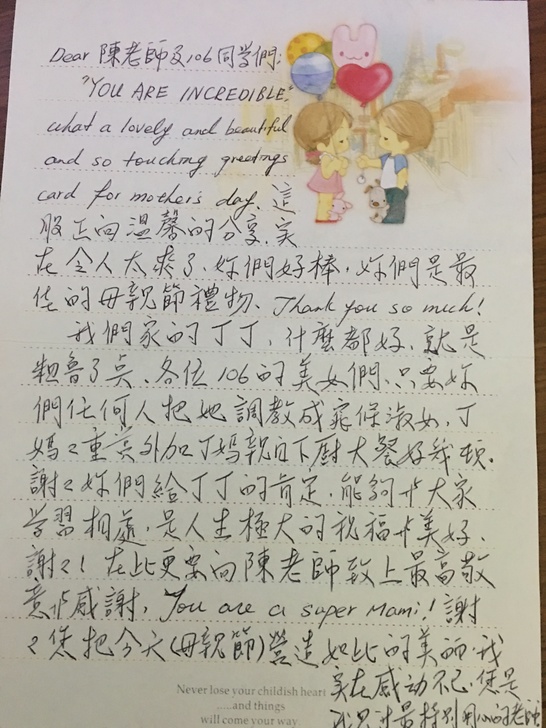 Dear 陳老師及106同學們:
"YOU ARE INCREDIBLE."
what a lovely and beautiful
and so touching greetings
card for mother's day. 這
股正向溫馨的分享, 实
在令人太爽了、妳們好棒, 妳們是最
佳的母親節禮物、Thank you so much!
我們家的丁丁, 什麼都好、就是
粗魯了点、各位106的美女們、只要妳
們任何人把她調教成窈窕淑女, 丁
媽々重賞外加丁媽親自下廚大餐好幾頓.
謝々妳們給丁丁的肯定, 能夠和大家
学習相處, 是人生極大的祝福和美好、
謝々! 在此更要向陳老師致上最高敬
意和感謝, You are a super Mami! 謝
々您把今天(母親節)營造如此的美麗, 我
实在感动不已, 您是
最特別用心的老師
Never lose your childish heart
.....and things
will come your way.